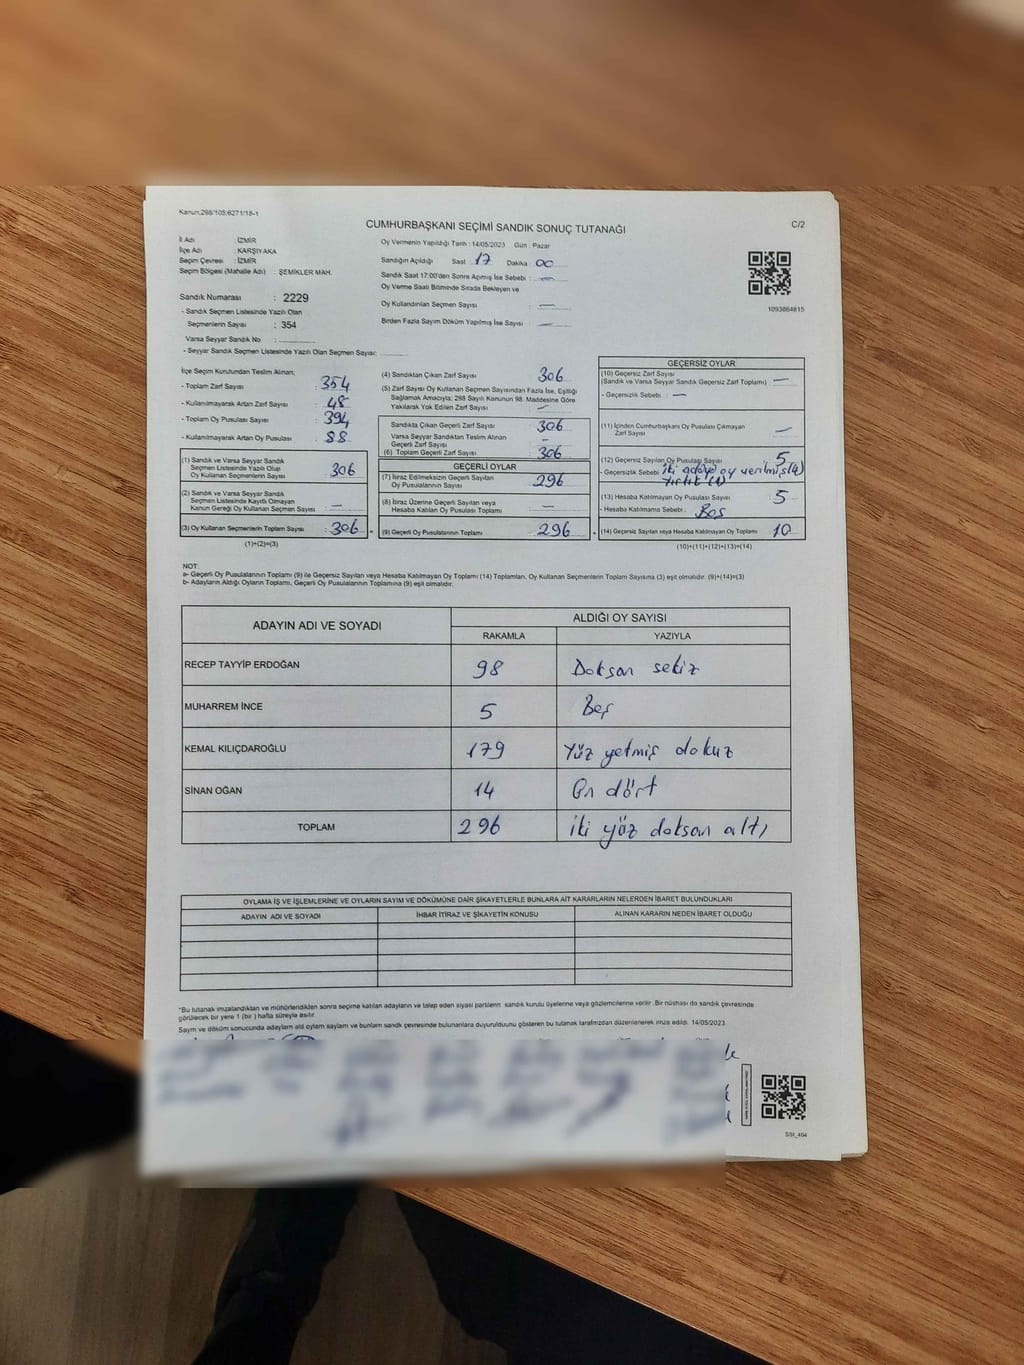 Kanun;298/105;6271/18-1
CUMHURBAŞKANI SEÇİMİ SANDIK SONUÇ TUTANAĞI
C/2
İl Adı : İZMİR
İlçe Adı : KARŞIYAKA
Seçim Çevresi : İZMİR
Seçim Bölgesi (Mahalle Adı) : ŞEMİKLER MAH.
Sandık Numarası : 2229
- Sandık Seçmen Listesinde Yazılı Olan
Seçmenlerin Sayısı : 354
Varsa Seyyar Sandık No :
- Seyyar Sandık Seçmen Listesinde Yazılı Olan Seçmen Sayısı:
Oy Vermenin Yapıldığı Tarih : 14/05/2023 Gün : Pazar
Sandığın Açıldığı Saat 17 Dakika 00
Sandık Saat 17:00'den Sonra Açımış İse Sebebi : —
Oy Verme Saati Bitiminde Sırada Bekleyen ve
Oy Kullandırılan Seçmen Sayısı : —
Birden Fazla Sayım Döküm Yapılmış İse Sayısı : —
1093864815
İlçe Seçim Kurulundan Teslim Alınan;
- Toplam Zarf Sayısı : 354
- Kullanılmayarak Artan Zarf Sayısı : 48
- Toplam Oy Pusulası Sayısı : 394
- Kullanılmayarak Artan Oy Pusulası : 88
(1) Sandık ve Varsa Seyyar Sandık
Seçmen Listesinde Yazılı Olup
Oy Kullanan Seçmenlerin Sayısı : 306
(2) Sandık ve Varsa Seyyar Sandık
Seçmen Listesinde Kayıtlı Olmayan
Kanun Gereği Oy Kullanan Seçmen Sayısı : —
(3) Oy Kullanan Seçmenlerin Toplam Sayısı : 306 =
(1)+(2)=(3)
(4) Sandıktan Çıkan Zarf Sayısı : 306
(5) Zarf Sayısı Oy Kullanan Seçmen Sayısından Fazla İse, Eşitliği
Sağlamak Amacıyla; 298 Sayılı Kanunun 98. Maddesine Göre
Yakılarak Yok Edilen Zarf Sayısı : —
Sandıkta Çıkan Geçerli Zarf Sayısı : 306
Varsa Seyyar Sandıktan Teslim Alınan
Geçerli Zarf Sayısı : —
(6) Toplam Geçerli Zarf Sayısı : 306
GEÇERLİ OYLAR
(7) İtiraz Edilmeksizin Geçerli Sayılan
Oy Pusulalarının Sayısı : 296
(8) İtiraz Üzerine Geçerli Sayılan veya
Hesaba Katılan Oy Pusulaları Toplamı : —
(9) Geçerli Oy Pusulalarının Toplamı : 296 +
GEÇERSİZ OYLAR
(10) Geçersiz Zarf Sayısı
(Sandık ve Varsa Seyyar Sandık Geçersiz Zarf Toplamı) : —
- Geçersizlik Sebebi : —
(11) İçinden Cumhurbaşkanı Oy Pusulası Çıkmayan
Zarf Sayısı : —
(12) Geçersiz Sayılan Oy Pusulası Sayısı : 5
- Geçersizlik Sebebi iki adaya oy verilmiş(4)
Yırtık (1)
(13) Hesaba Katılmayan Oy Pusulası Sayısı : 5
- Hesaba Katılmama Sebebi : Boş
(14) Geçersiz Sayılan veya Hesaba Katılmayan Oy Toplamı : 10
(10)+(11)+(12)+(13)=(14)
NOT:
a- Geçerli Oy Pusulalarının Toplamı (9) ile Geçersiz Sayılan veya Hesaba Katılmayan Oy Toplamı (14) Toplamları, Oy Kullanan Seçmenlerin Toplam Sayısına (3) eşit olmalıdır. (9)+(14)=(3)
b- Adayların Aldığı Oyların Toplamı, Geçerli Oy Pusulalarının Toplamına (9) eşit olmalıdır.
ADAYIN ADI VE SOYADI
ALDIĞI OY SAYISI
RAKAMLA YAZIYLA
RECEP TAYYİP ERDOĞAN 98 Doksan sekiz
MUHARREM İNCE 5 Beş
KEMAL KILIÇDAROĞLU 179 Yüz yetmiş dokuz
SİNAN OĞAN 14 On dört
TOPLAM 296 iki yüz doksan altı
OYLAMA İŞ VE İŞLEMLERİNE VE OYLARIN SAYIM VE DÖKÜMÜNE DAİR ŞİKAYETLERLE BUNLARA AİT KARARLARIN NELERDEN İBARET BULUNDUKLARI
ADAYIN ADI VE SOYADI İHBAR İTİRAZ VE ŞİKAYETİN KONUSU ALINAN KARARIN NEDEN İBARET OLDUĞU
*Bu tutanak imzalandıktan ve mühürlendikten sonra seçime katılan adayların ve talep eden siyasi partilerin sandık kurulu üyelerine veya gözlemcilerine verilir. Bir nüshası da sandık çevresinde
görülecek bir yere 1 (bir) hafta süreyle asılır.
Sayım ve döküm sonucunda adayların aldı oyların sayıların ve bunların sandık çevresinde bulunanlara duyurulduunu gösteren bu tutanak tarafımızdan düzenlenerek imza edildi. 14/05/2023
SSt_404